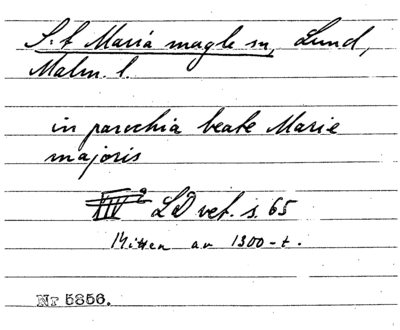 S:t Maria magle sn, Lund,
Malm. l.
in parochia beate Marie
majoris
LD vet. s. 65
Mitten av 1300-t.
Nr 5856.